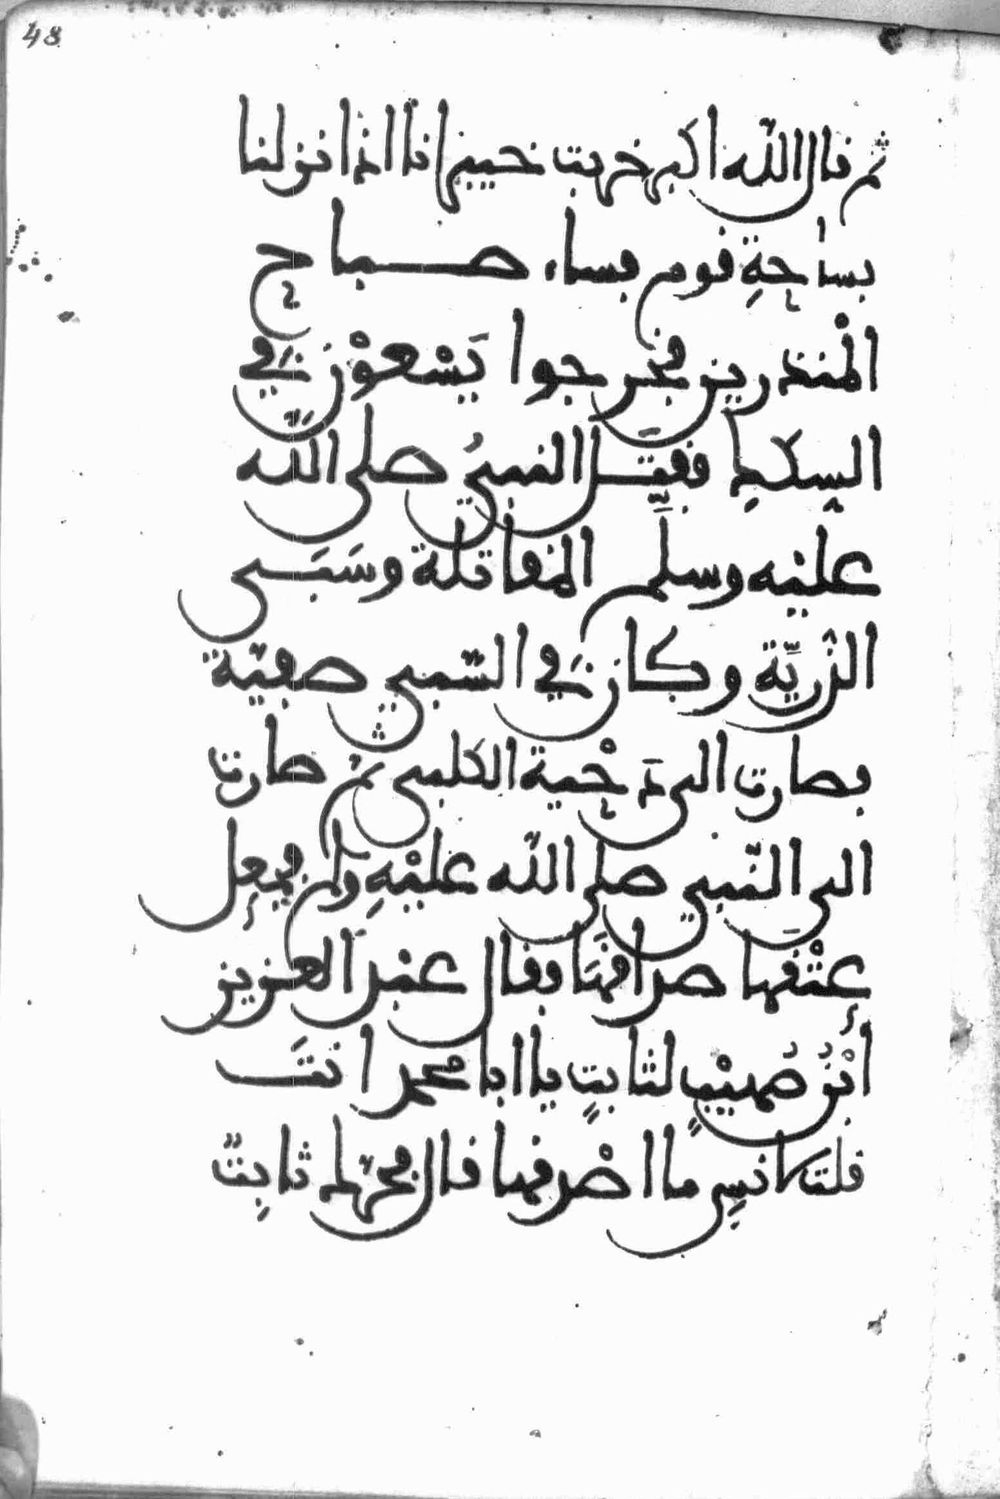 48
ثم قال الله اكبر خربت خيبر انا اذا نزلنا
بساحةِ قوم فساء صباح
الْمنذرين فخرجوا يَسْعَوْن في
السِكك فقتّل النبيُ صلى الله
عليْه وسلم المقاتلة وسَبَى
الذُريّة وكان في السّبي صفيّة
فصارت الى دَحْية الكلبي ثم صارت
الى النّبي صلى الله عليْهِ ولم فجعل
عِتْقها صداقهَا فقال عبد العزيز
أبْنُ صُهيْبٍ لثابتٍ يا ابا محمد انتَ
قلتَ لانسِ ما اصْدقها قال فحرّك ثابتٌ